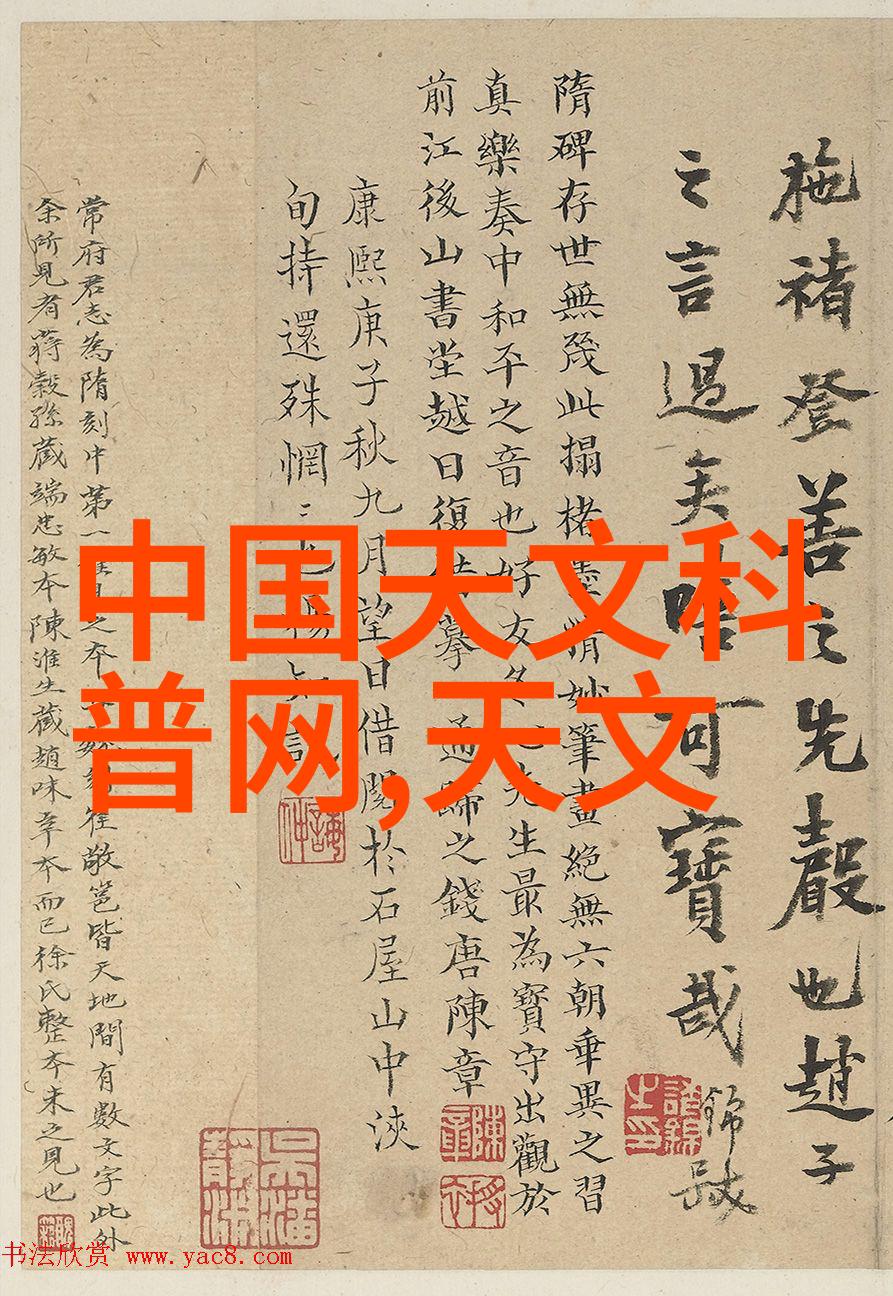 施褚登善之先聲也趙子
之言過矣
可寶哉
錦
隋碑存世無幾此搨楮
妙筆畫絕無六朝垂異之習
真樂奏中和平之音也好友
先生最為寶守出觀於
前江後山書堂越日復
摹
歸之錢唐陳章
康熙庚子秋九月望日借閱於石屋山中浹
旬持還殊惘
常府君志為隋刻中第一
之本
崔敬邕皆天地間有數文字此外
余所見有蔣穀孫藏端忠敏本陳淮生藏趙味辛本而已徐氏整本未之見也
中国天文科
普网,天文
书法欣赏 www.yac8.com